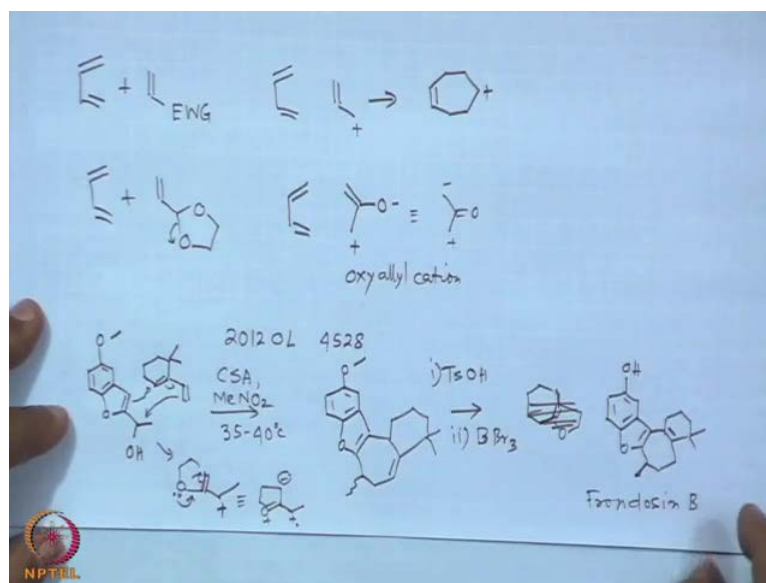 + EWG + → +
+ O O O- ≡ O
+ - +
oxyallyl cation
2012 OL 4528
CSA,
MeNO2
35-40°C
i) TsOH
ii) BBr3
O
O
OH
O
O
OH
O
Frondosin B
+ ≡
NPTEL